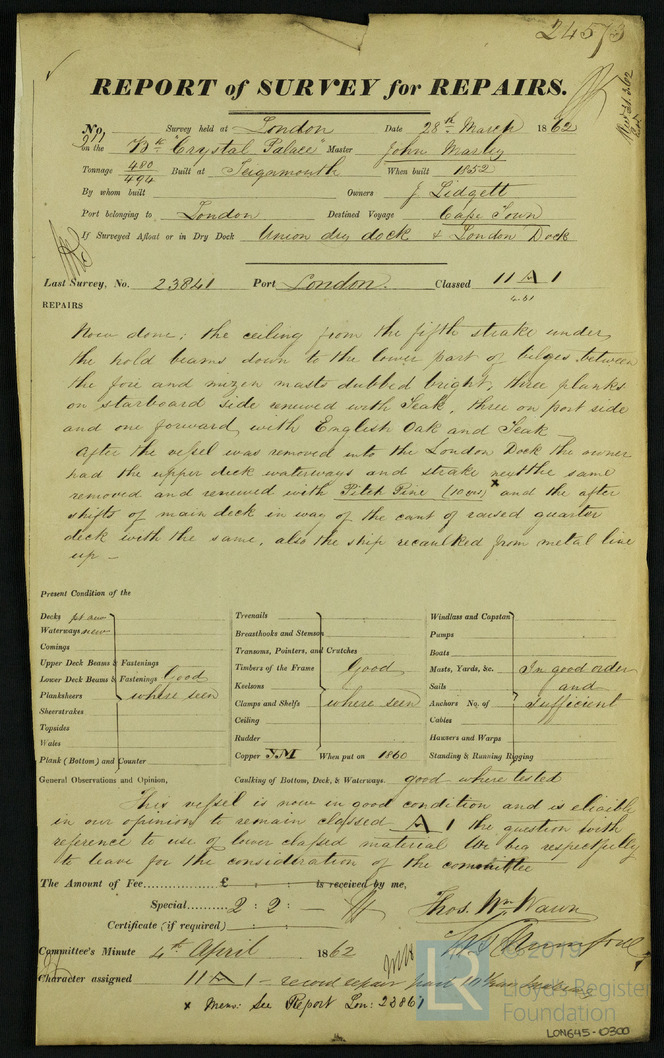 24573
REPORT of SURVEY for REPAIRS.
No. Survey held at London Date 28th March 1862
On the Bk "Crystal Palace" Master John Masley
Tonnage 480/494 Built at Teignmouth When built 1852
By whom built Owners J Lidgett
Port belonging to London Destined Voyage Cape Town
If Surveyed Afloat or in Dry Dock Union dry dock & London Dock
Last Survey, No. 23841 Port London. Classed 11 A 1
4.61
REPAIRS
Now done; the ceiling from the fifth strake under
the hold beams down to the lower part of bilges between
the fore and mizen masts dubbed bright, three planks
on starboard side renewed with Teak, three on port side
and one forward with English Oak and Teak
After the vessel was removed into the London Dock the owner
had the upper deck waterways and strake next the same
removed and renewed with Pitch Pine (10 yrs) x and the after
shifts of main deck in way of the cant of raised quarter
deck with the same, also the ship recaulked from metal line
up –
Present Condition of the
Decks pt new
Waterways new
Comings
Upper Deck Beams & Fastenings
Lower Deck Beams & Fastenings Good
Planksheers where seen
Sheerstrakes
Topsides
Wales
Plank (Bottom) and Counter
Treenails
Breasthooks and Stemson
Transoms, Pointers, and Crutches
Timbers of the Frame Good
Keelsons
Clamps and Shelfs where seen
Ceiling
Rudder
Copper YM When put on 1860
Windlass and Capstan
Pumps
Boats
Masts, Yards, &c. In good order
Sails and
Anchors No. of sufficient
Cables
Hawsers and Warps
Standing & Running Rigging
General Observations and Opinion, Caulking of Bottom, Deck, & Waterways. good where tested
This vessel is now in good condition and is eligible
in our opinion to remain classed A 1 the question with
reference to use of lower classed material We beg respectfully
to leave for the consideration of the committee
The Amount of Fee £ : : is received by me,
Special 2 : 2 : –
Thos. Wm Wawn
Certificate (if required) : :
Committee's Minute 4th April 1862
Character assigned 11 A 1 – record repair part
x Mem: See Report Lon: 23861
© 2019
Lloyd's Register
Foundation
LON645-0300